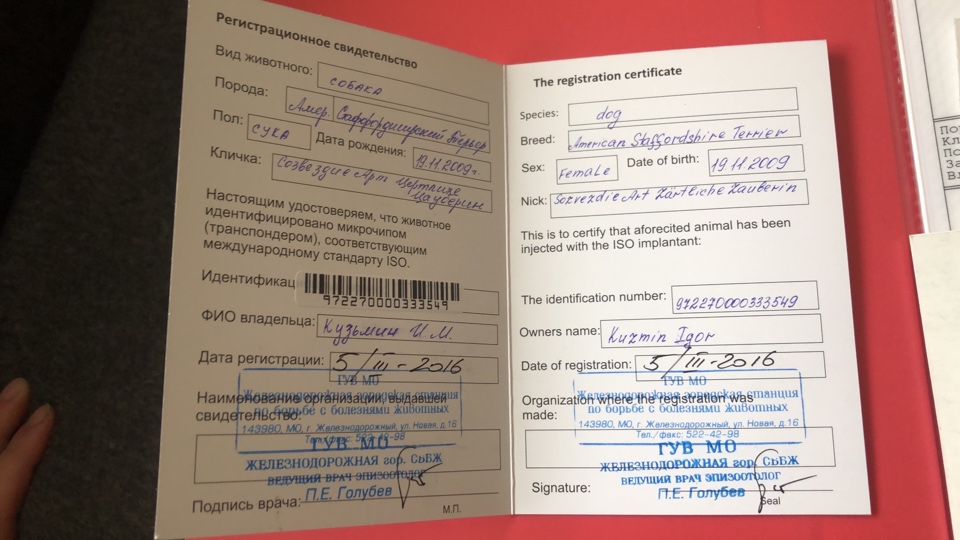 Регистрационное свидетельство
Вид животного: собака
Порода: Амер. Стаффордширский терьер
Пол: сука Дата рождения: 19.11.2009г.
Кличка: Созвездие Арт Цертлихе
Цауберин
Настоящим удостоверяем, что животное
идентифицировано микрочипом
(транспондером), соответствующим
международному стандарту ISO.
Идентификац
972270000333549
ФИО владельца: Кузьмин И.М.
Дата регистрации: 5/III-2016
Наименование организации, выдавшей
свидетельство:
ГУВ МО
Железнодорожная городская станция
по борьбе с болезнями животных
143980, МО, г. Железнодорожный, ул. Новая, д.16
Тел./факс: 522-42-98
ГУВ МО
ЖЕЛЕЗНОДОРОЖНАЯ гор. СББЖ
ВЕДУЩИЙ ВРАЧ ЭПИЗООТОЛОГ
П.Е. Голубев
Подпись врача:
М.П.
The registration certificate
Species: dog
Breed: American Staffordshire Terrier
Sex: Female Date of birth: 19.11.2009
Nick: Sozvezdie Art Zärtliche Zauberin
This is to certify that aforecited animal has been
injected with the ISO implantant:
The identification number: 972270000333549
Owners name: Kuzmin Igor
Date of registration: 5/III-2016
Organization where the registration was
made:
ГУВ МО
Железнодорожная городская станция
по борьбе с болезнями животных
143980, МО, г. Железнодорожный, ул. Новая, д.16
Тел./факс: 522-42-98
ГУВ МО
ЖЕЛЕЗНОДОРОЖНАЯ гор. СББЖ
ВЕДУЩИЙ ВРАЧ ЭПИЗООТОЛОГ
П.Е. Голубев
Signature:
Seal